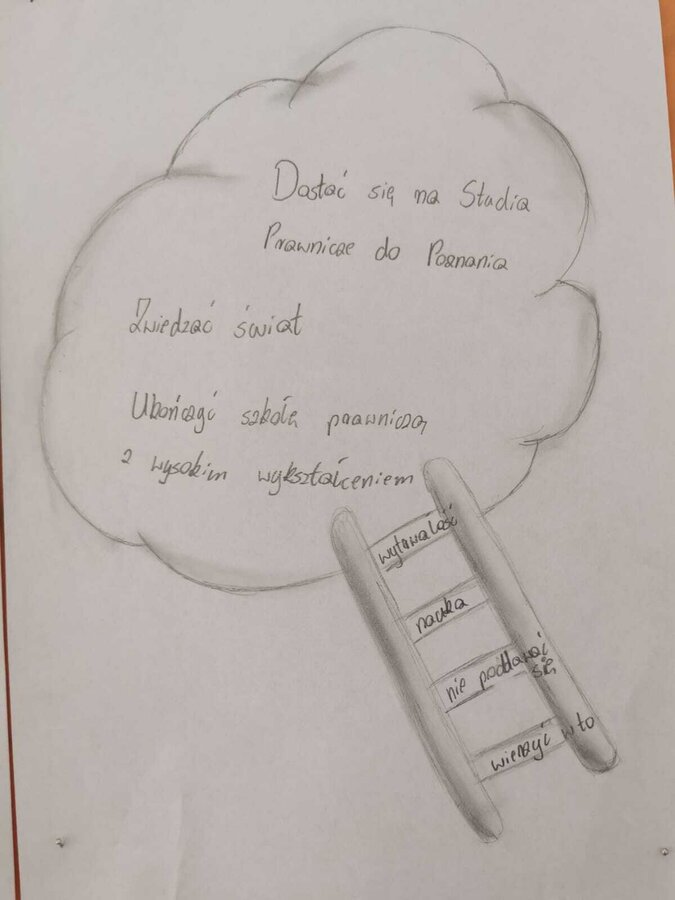 Dostać się na Studia
Prawnicze do Poznania
Zwiedzać świat
Ukończyć szkołę prawniczą
z wysokim wykształceniem
wytrwałość
nauka
nie poddawać
się
wierzyć w to